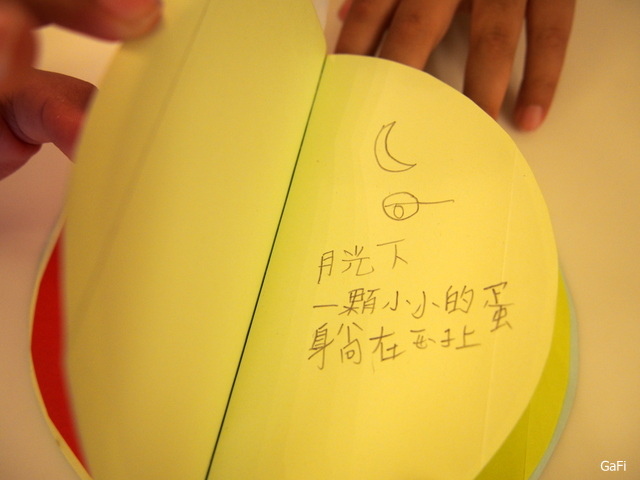 月光下
一顆小小的蛋
躺在玉上
GaFi